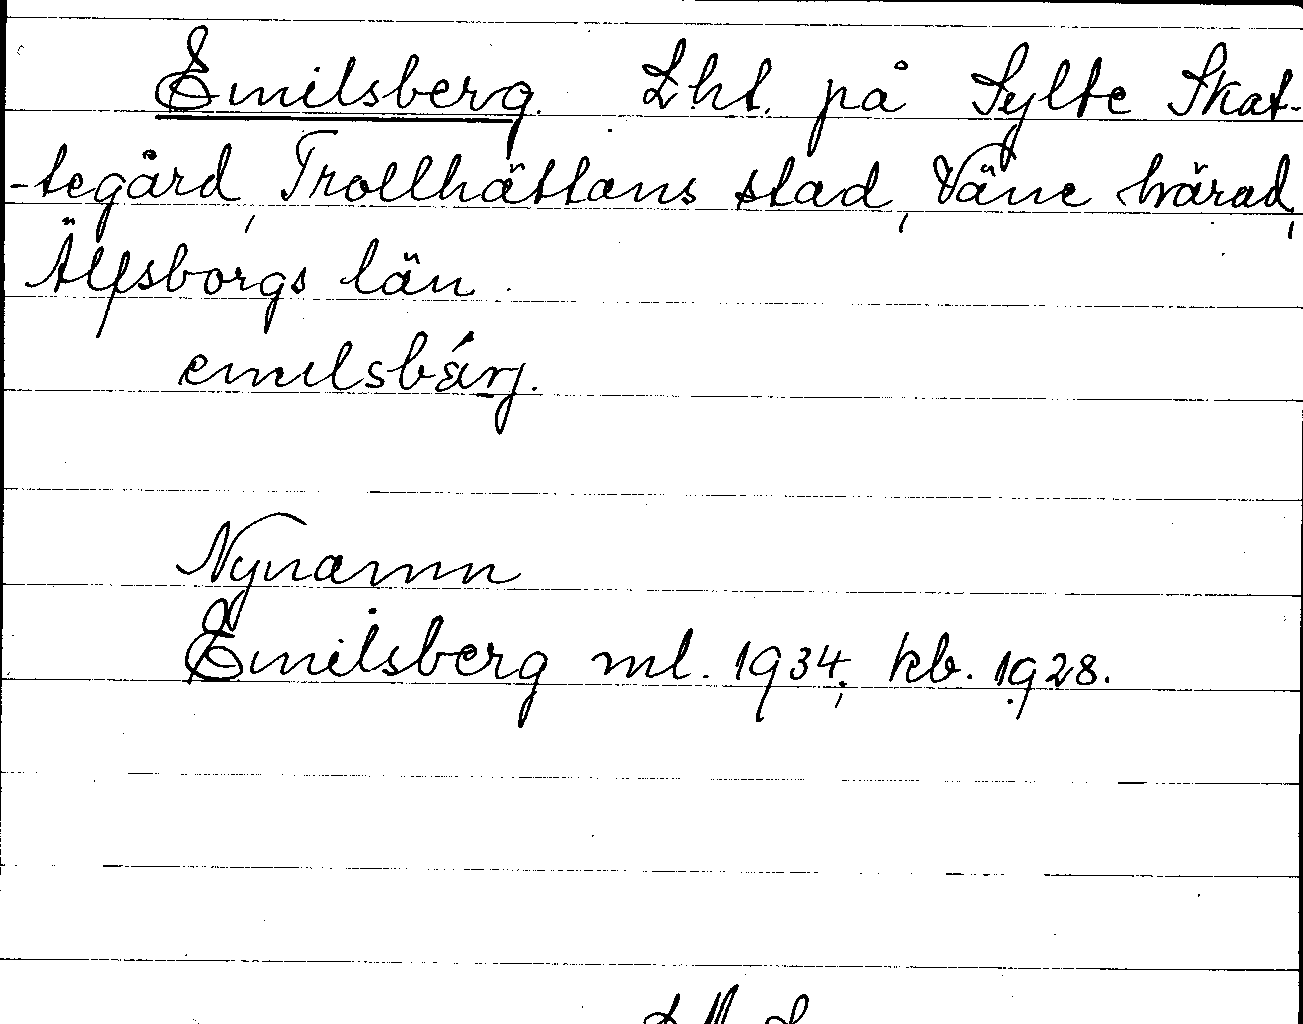 Emilsberg. Lht. på Sylte Skat-
-tegård, Trollhättans stad, Väne härad,
Älfsborgs län.
emilsbárj.
Nynamn
Emilsberg ml. 1934; kb. 1928.